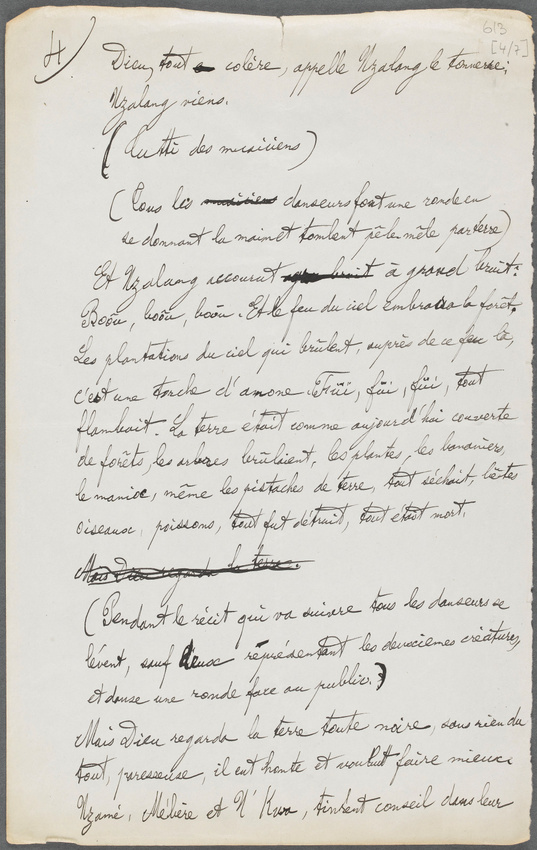 4)
613
[4/7]
Dieu, tout colère, appelle Nzalang le tonnerre:
Nzalang viens.
(Tutti des musiciens)
(Tous les musiciens danseurs font une ronde en
se donnant la main et tombent pêle-mêle par terre)
Et Nzalang accourut à grand bruit:
Booû, booû, booû. Et le feu du ciel embrasa la forêt.
Les plantations du ciel qui brûlent, auprès de ce feu là,
c'est une torche d'amone. Füï, füi, füi, tout
flambait. La terre était comme aujourd'hui couverte
de forêts, les arbres brûlaient, les plantes, les bananiers,
le manioc, même les pistaches de terre, tout séchait, bêtes
oiseaux, poissons, tout fut détruit, tout était mort.
Mais Dieu regarda la terre.
(Pendant le récit qui va suivre tous les danseurs se
lèvent, sauf deux représentant les deuxièmes créatures,
et danse une ronde face au public.)
Mais Dieu regarda la terre toute noire, sans rien du
tout, paresseuse, il eut honte et voulut faire mieux
Nzamé, Mébère et N'Kwa, tinrent conseil dans leur